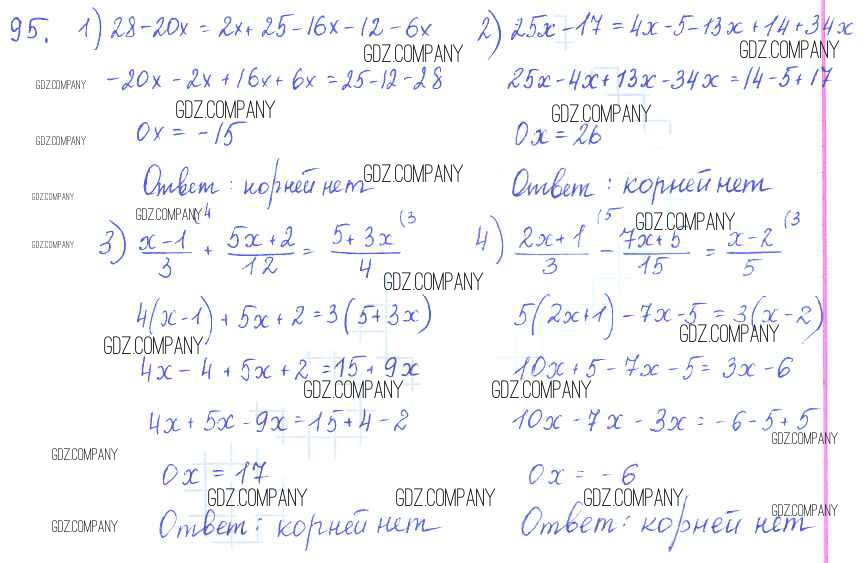 95. 1) 28-20x = 2x+25-16x-12-6x
GDZ.COMPANY
-20x-2x+16x+6x=25-12-28
GDZ.COMPANY
GDZ.COMPANY
0x = -15
GDZ.COMPANY
Ответ: корней нет
GDZ.COMPANY
GDZ.COMPANY
2) 25x-17 = 4x-5-13x+14+34x
GDZ.COMPANY
25x-4x+13x-34x=14-5+17
GDZ.COMPANY
0x = 26
Ответ: корней нет
GDZ.COMPANY
GDZ.COMPANY
3) (x-1)/3 (4 + (5x+2)/12 = (5+3x)/4 (3
GDZ.COMPANY
4(x-1)+5x+2=3(5+3x)
GDZ.COMPANY
4x-4+5x+2=15+9x
GDZ.COMPANY
4x+5x-9x=15+4-2
GDZ.COMPANY
0x = 17
GDZ.COMPANY
GDZ.COMPANY
Ответ: корней нет
GDZ.COMPANY
GDZ.COMPANY
4) (2x+1)/3 (5 - (7x+5)/15 = (x-2)/5 (3
5(2x+1)-7x-5=3(x-2)
GDZ.COMPANY
10x+5-7x-5=3x-6
GDZ.COMPANY
10x-7x-3x=-6-5+5
GDZ.COMPANY
0x = -6
GDZ.COMPANY
GDZ.COMPANY
Ответ: корней нет